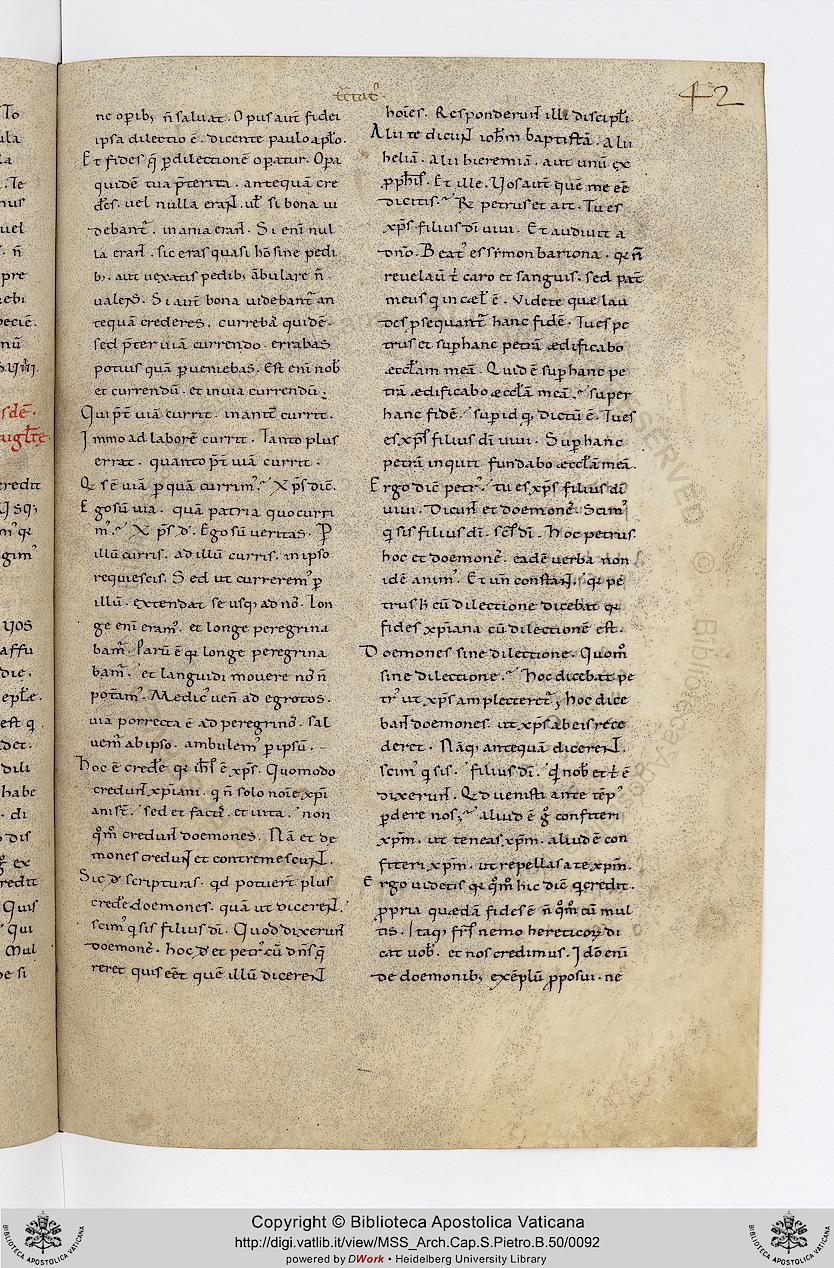 42
ne operib; ñ saluat. Opus aut̄ fidei
ipsa dilectio ē. dicente paulo aplo.
Et fides q̄ p̱ dilectionē operatur. Opa
quidē tua p̄terita. antequā cre
deres. uel nulla eraɴt. ul' si bona ui
debant̄. inania eraɴt. Si enī nul
la eraɴt. sic eras quasi hō sine pedi
b;. aut uexatis pedib; ābulare ñ
ualens. Si aut̄ bona uidebant̄ an
tequā crederes. currebas quidē.
sed p̄ter uiā currendo. errabas
potius quā p̱ueniebas. Est enī nob̄
et currendū. et in uia currendū;
Qui p̄t̄ uiā currit. inanit̄ currit.
Immo ad laborē currit. Tanto plus
errat. quanto p̄t̄ uiā currit.
Q; ē uia p̱ quā currim'? Xp̄s dix̄.
Ego sū uia. quā patria quo curri
m'? Xp̄s d'. Ego sū ueritas. P̱
illū curris. ad illū curris. in ipso
requiescis. Sed ut currerem' p̱
illū. extendit se usq; ad nos. Lon
ge enī eram'. et longe peregrina
bam'. Parū ē q; longe peregrina
bam'. et languidi mouere nos ñ
poteram'. Medic' uen̄ ad egrotos.
uia porrecta ē ad peregrinos. Sal
uem̄ ab ipso. ambulem' p̱ ipsū.
Hoc ē credere q; ih̄s ē xp̄s. Quomodo
creduɴt xp̄iani. q ñ solo noīe xp̄i
ani st̄. sed et factis. et uita. non
quom̄ creduɴt doemones. Nā et de
mones creduɴt et contremescuɴt.
Sic d' scriptura. qd potuer̄ plus
credere doemones. quā ut dicereɴt.
scim' q sis filius dī. Quod dixeruɴt
doemones. hoc d' et petrus. cū dn̄s q̄
reret quis eēt. quē illū dicereɴt
hoīes. Responderuɴt illi discipli.
Alii te dicuɴt ioh̄m baptistā. alii
heliā. alii hieremiā. aut unū ex
p̱phis. Et ille. Uos aut̄ quē me eē
dicitis? R̄ petrus et ait. Tu es
xp̄s filius dī uiui. Et audiuit a
dn̄o. Beat' es symon bariona. q; ñ
reuelauit t' caro et sanguis. sed pat̄
meus q in cælis ē. Videte quæ lau
des p̱sequant̄ hanc fidē. Tu es pe
trus et sup̱ hanc petrā ædificabo
æcclam meā. Quid ē sup̱ hanc pe
trā ædificabo æcclā meā? super
hanc fidē. sup̱ id q dictū ē. Tu es
es xp̄s filius dī uiui. Sup̱ hanc
petrā inquit fundabo æcclam meā.
Ergo dix̄ petr'. tu es xp̄s filius dī
uiui. Dicuɴt et doemones. Scim'
q sis filius dī. scs̄ dī. Hoc petrus
hoc et doemones. eadē uerba. non
idē anim'. Et un̄ constat. q; pe
trus h' cū dilectione dicebat. q;
fides xp̄iana cū dilectionē est.
Doemones sine dilectione. Quom̄
sine dilectione? Hoc dicebat pe
tr' ut xp̄s amplecteret̄; hoc dice
baɴt doemones. ut xp̄s ab eis rece
deret. Nāq; antequā dicereɴt.
scim' q sis. filius dī. qd nob̄ et t' ē
dixeruɴt. Qd uenisti ante tēp'
p̱dere nos? aliud ē g̊ confiteri
xp̄m. ut teneas xp̄m. aliud ē con
fiteri xp̄m. ut repellas a te xp̄m.
Ergo uidetis q; quom̄ hic dix̄ q credit.
p̱pria quædā fides ē ñ quom̄ cū mul
tis. Itaq; fr̄s nemo hereticoꝝ di
cat uob̄. et nos credimus. Idō enī
de doemonib; exēplū p̱posui. ne
Copyright © Biblioteca Apostolica Vaticana
http://digi.vatlib.it/view/MSS_Arch.Cap.S.Pietro.B.50/0092
powered by DWork • Heidelberg University Library